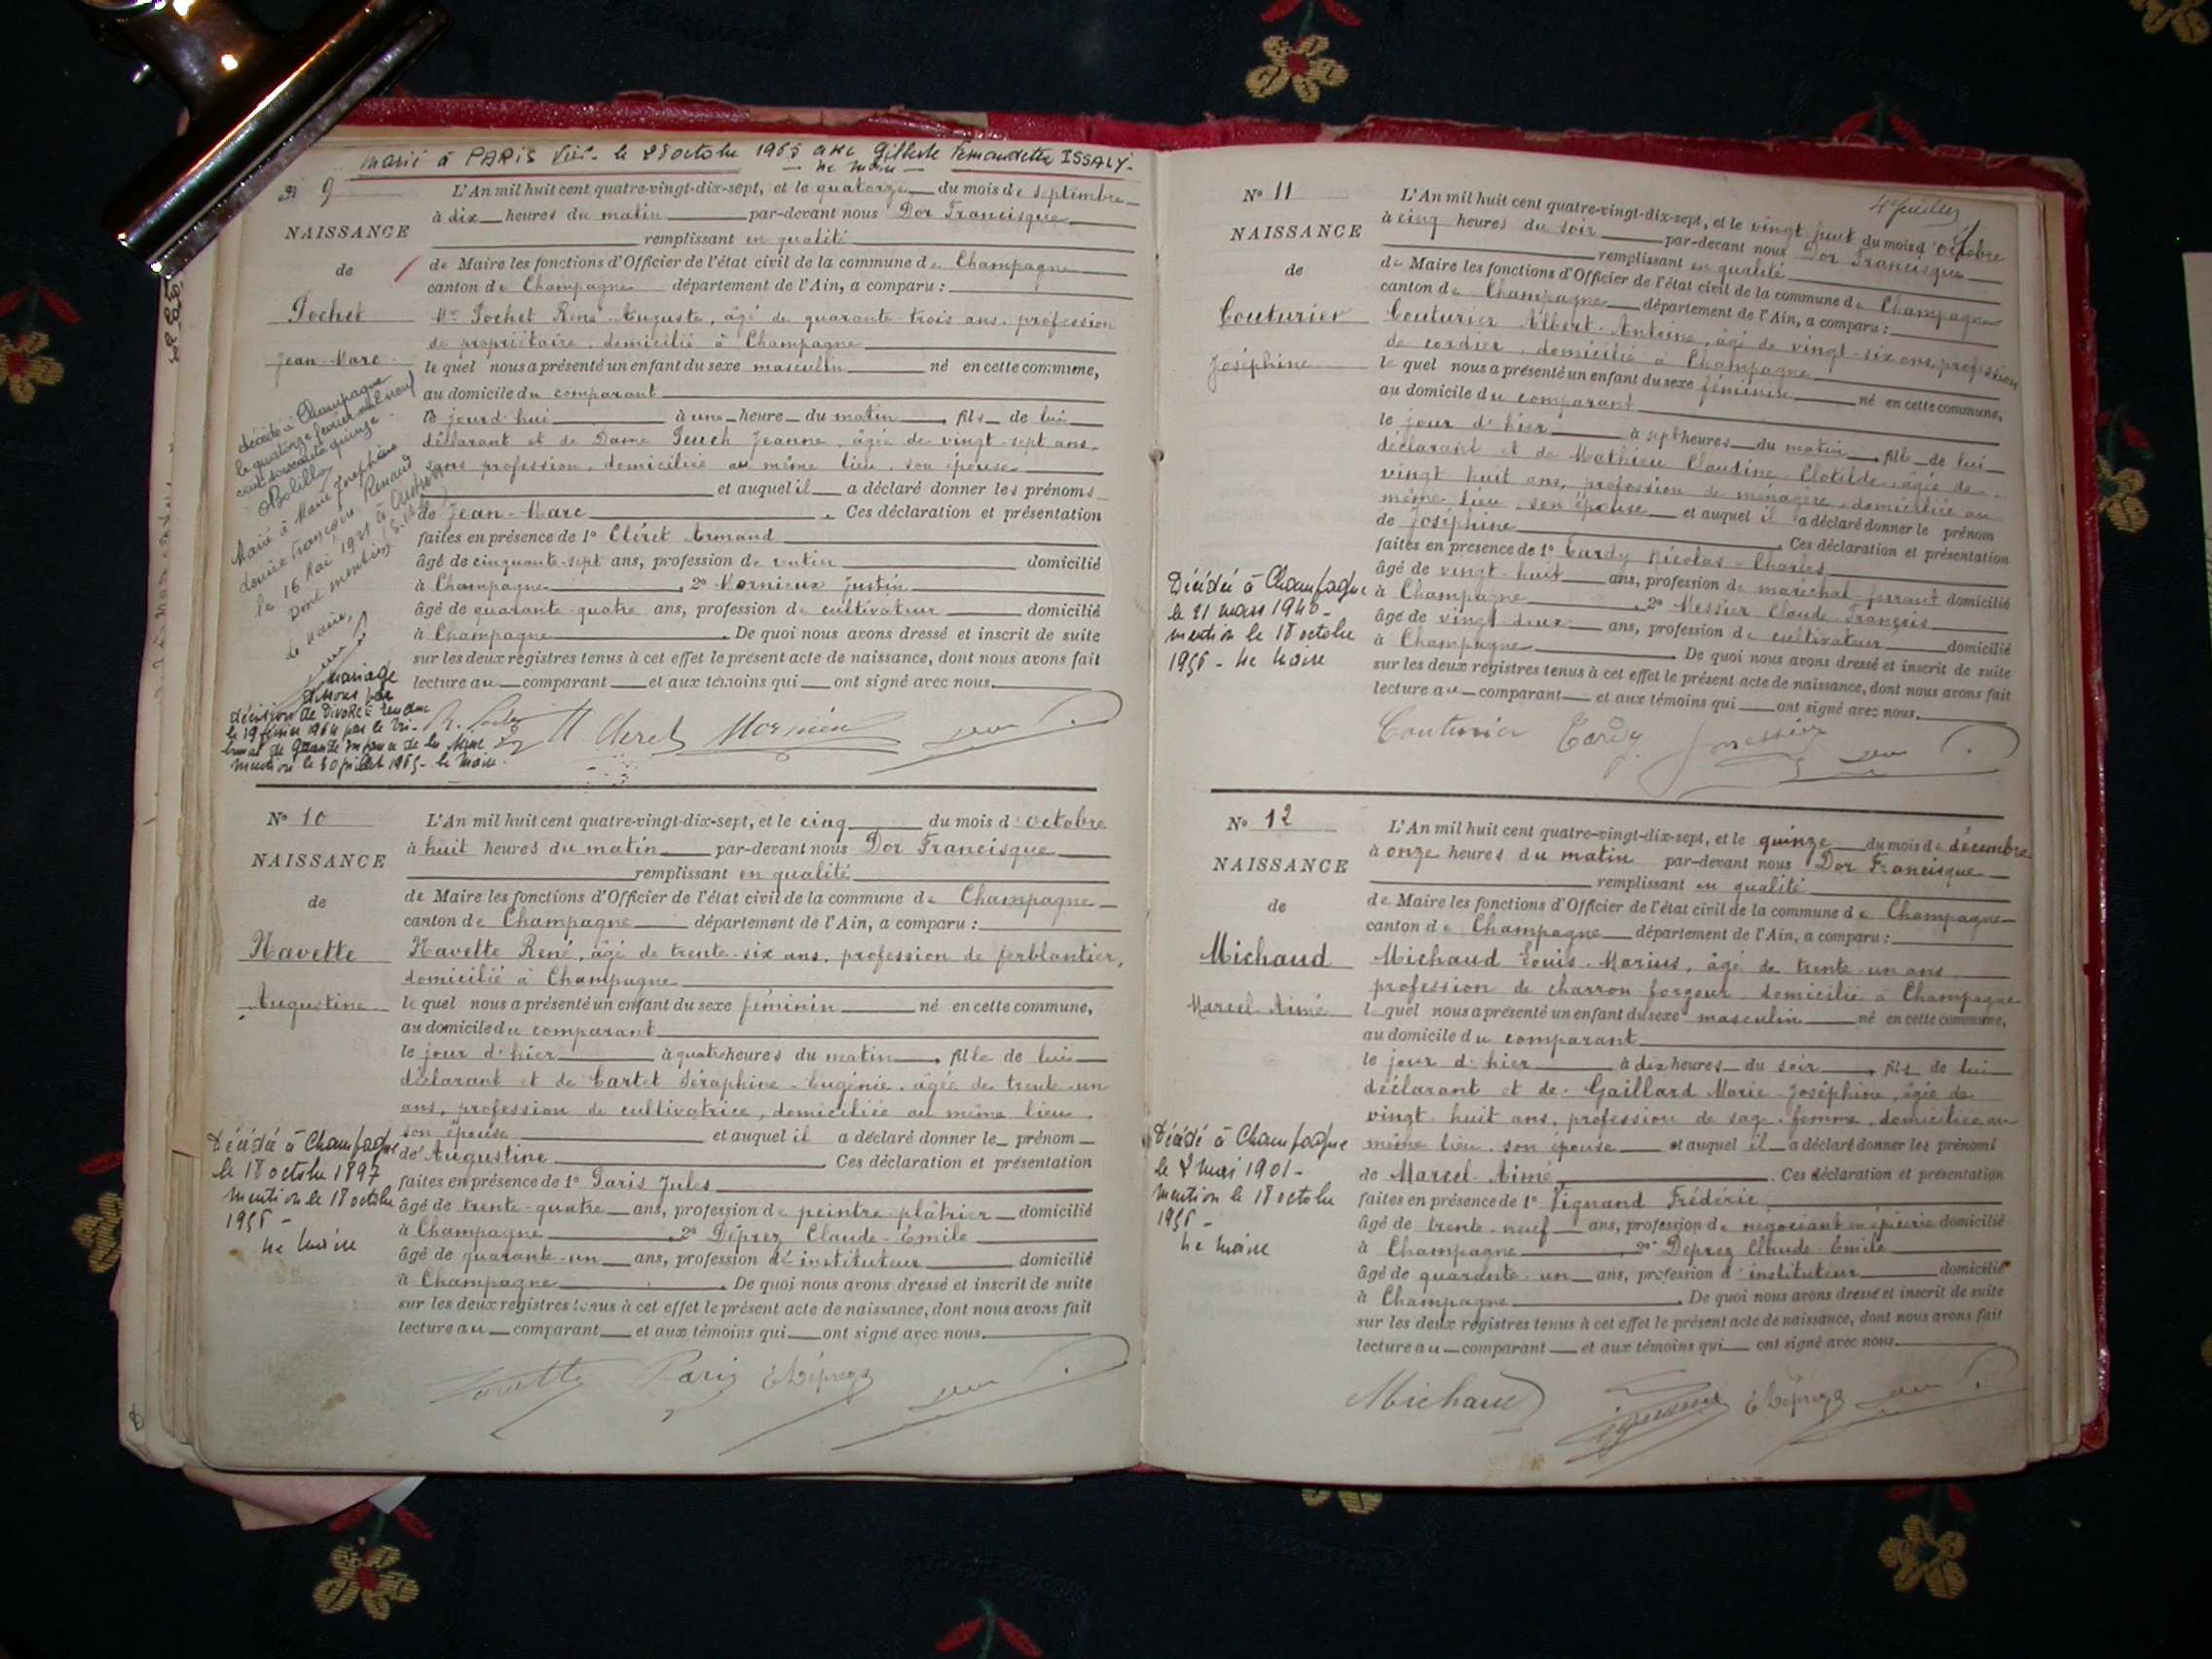 marié à PARIS VIIe le 28 octobre 1965 avec Gilberte Fernandette ISSALY.
— Le Maire —
N° 9
NAISSANCE
de
Pochet
Jean-Marc
L'An mil huit cent quatre-vingt-dix-sept, et le quatorze du mois de septembre
à dix heures du matin par-devant nous Dor Francisque
remplissant en qualité
de Maire les fonctions d'Officier de l'état civil de la commune de Champagne
canton de Champagne département de l'Ain, a comparu :
Mr Pochet René-Auguste, âgé de quarante-trois ans, profession
de propriétaire, domicilié à Champagne
le quel nous a présenté un enfant du sexe masculin né en cette commune,
au domicile du comparant
ce jourd'hui à une heure du matin, fils de lui
déclarant et de Dame Peuch Jeanne, âgée de vingt-sept ans,
sans profession, domiciliée au même lieu, son épouse
et auquel il a déclaré donner les prénoms
de Jean-Marc. Ces déclaration et présentation
faites en présence de 1° Cléret Armand
âgé de cinquante-sept ans, profession de rentier domicilié
à Champagne, 2° Mornieux Justin
âgé de quarante-quatre ans, profession de cultivateur domicilié
à Champagne. De quoi nous avons dressé et inscrit de suite
sur les deux registres tenus à cet effet le présent acte de naissance, dont nous avons fait
lecture au comparant et aux témoins qui ont signé avec nous.
décédé à Champagne
le quatorze février mil neuf
cent soixante quinze
Marié à Marie Josephine
Renaud
le 16 Mai 1921 à
Dont mention
Le Maire,
Mariage
dissous par
décision de Divorce rendue
le 19 février 1964 par le Tri-
bunal de Grande Instance de la Seine
mention le 30 juillet 1965 - le Maire.
A. Cleret Mornieux
N° 10
NAISSANCE
de
Navette
Augustine
L'An mil huit cent quatre-vingt-dix-sept, et le cinq du mois d'octobre
à huit heures du matin par-devant nous Dor Francisque
remplissant en qualité
de Maire les fonctions d'Officier de l'état civil de la commune de Champagne
canton de Champagne département de l'Ain, a comparu :
Navette René, âgé de trente-six ans, profession de ferblantier,
domicilié à Champagne
le quel nous a présenté un enfant du sexe féminin né en cette commune,
au domicile du comparant
le jour d'hier à quatre heures du matin, fille de lui
déclarant et de Cartet Séraphine-Eugénie, âgée de trente-un
ans, profession de cultivatrice, domiciliée au même lieu,
son épouse et auquel il a déclaré donner le prénom
de Augustine Ces déclaration et présentation
faites en présence de 1° Paris Jules
âgé de trente-quatre ans, profession de peintre-plâtrier domicilié
à Champagne, 2° Déprez Claude-Émile
âgé de quarante-un ans, profession d'instituteur domicilié
à Champagne. De quoi nous avons dressé et inscrit de suite
sur les deux registres tenus à cet effet le présent acte de naissance, dont nous avons fait
lecture au comparant et aux témoins qui ont signé avec nous.
Décédée à Champagne
le 18 octobre 1897
mention le 18 octobre
1956 -
Le Maire
Navette Paris E Déprez
4e feuillet
N° 11
NAISSANCE
de
Couturier
Joséphine
L'An mil huit cent quatre-vingt-dix-sept, et le vingt-huit du mois d'octobre
à cinq heures du soir par-devant nous Dor Francisque
remplissant en qualité
de Maire les fonctions d'Officier de l'état civil de la commune de Champagne
canton de Champagne département de l'Ain, a comparu :
Couturier Albert-Antoine, âgé de vingt-six ans, profession
de cordier, domicilié à Champagne
le quel nous a présenté un enfant du sexe féminin né en cette commune,
au domicile du comparant
le jour d'hier à sept heures du matin, fille de lui
déclarant et de Mathieu Claudine-Clotilde, âgée de
vingt huit ans, profession de ménagère, domiciliée au
même lieu, son épouse et auquel il a déclaré donner le prénom
de Joséphine. Ces déclaration et présentation
faites en présence de 1° Tardy Nicolas-Charles
âgé de vingt-huit ans, profession de maréchal-ferrant domicilié
à Champagne, 2° Messier Claude-François
âgé de vingt-deux ans, profession de cultivateur domicilié
à Champagne. De quoi nous avons dressé et inscrit de suite
sur les deux registres tenus à cet effet le présent acte de naissance, dont nous avons fait
lecture au comparant et aux témoins qui ont signé avec nous.
Décédée à Champagne
le 21 mars 1940 -
mention le 18 octobre
1956 - Le Maire
Couturier Tardy Messier
N° 12
NAISSANCE
de
Michaud
Marcel-Aimé
L'An mil huit cent quatre-vingt-dix-sept, et le quinze du mois de décembre
à onze heures du matin par-devant nous Dor Francisque
remplissant en qualité
de Maire les fonctions d'Officier de l'état civil de la commune de Champagne
canton de Champagne département de l'Ain, a comparu :
Michaud Louis-Marius, âgé de trente-un ans
profession de charron-forgeur, domicilié à Champagne
le quel nous a présenté un enfant du sexe masculin né en cette commune,
au domicile du comparant
le jour d'hier à dix heures du soir, fils de lui
déclarant et de Gaillard Marie-Joséphine, âgée de
vingt-huit ans, profession de sage-femme, domiciliée au
même lieu, son épouse et auquel il a déclaré donner les prénoms
de Marcel-Aimé. Ces déclaration et présentation
faites en présence de 1° Vignand Frédéric
âgé de trente-neuf ans, profession de négociant en épicerie domicilié
à Champagne, 2° Déprez Claude-Émile
âgé de quarante-un ans, profession d'instituteur domicilié
à Champagne. De quoi nous avons dressé et inscrit de suite
sur les deux registres tenus à cet effet le présent acte de naissance, dont nous avons fait
lecture au comparant et aux témoins qui ont signé avec nous.
Décédé à Champagne
le 8 mai 1901 -
mention le 18 octobre
1956 -
Le Maire
Michaud E Déprez